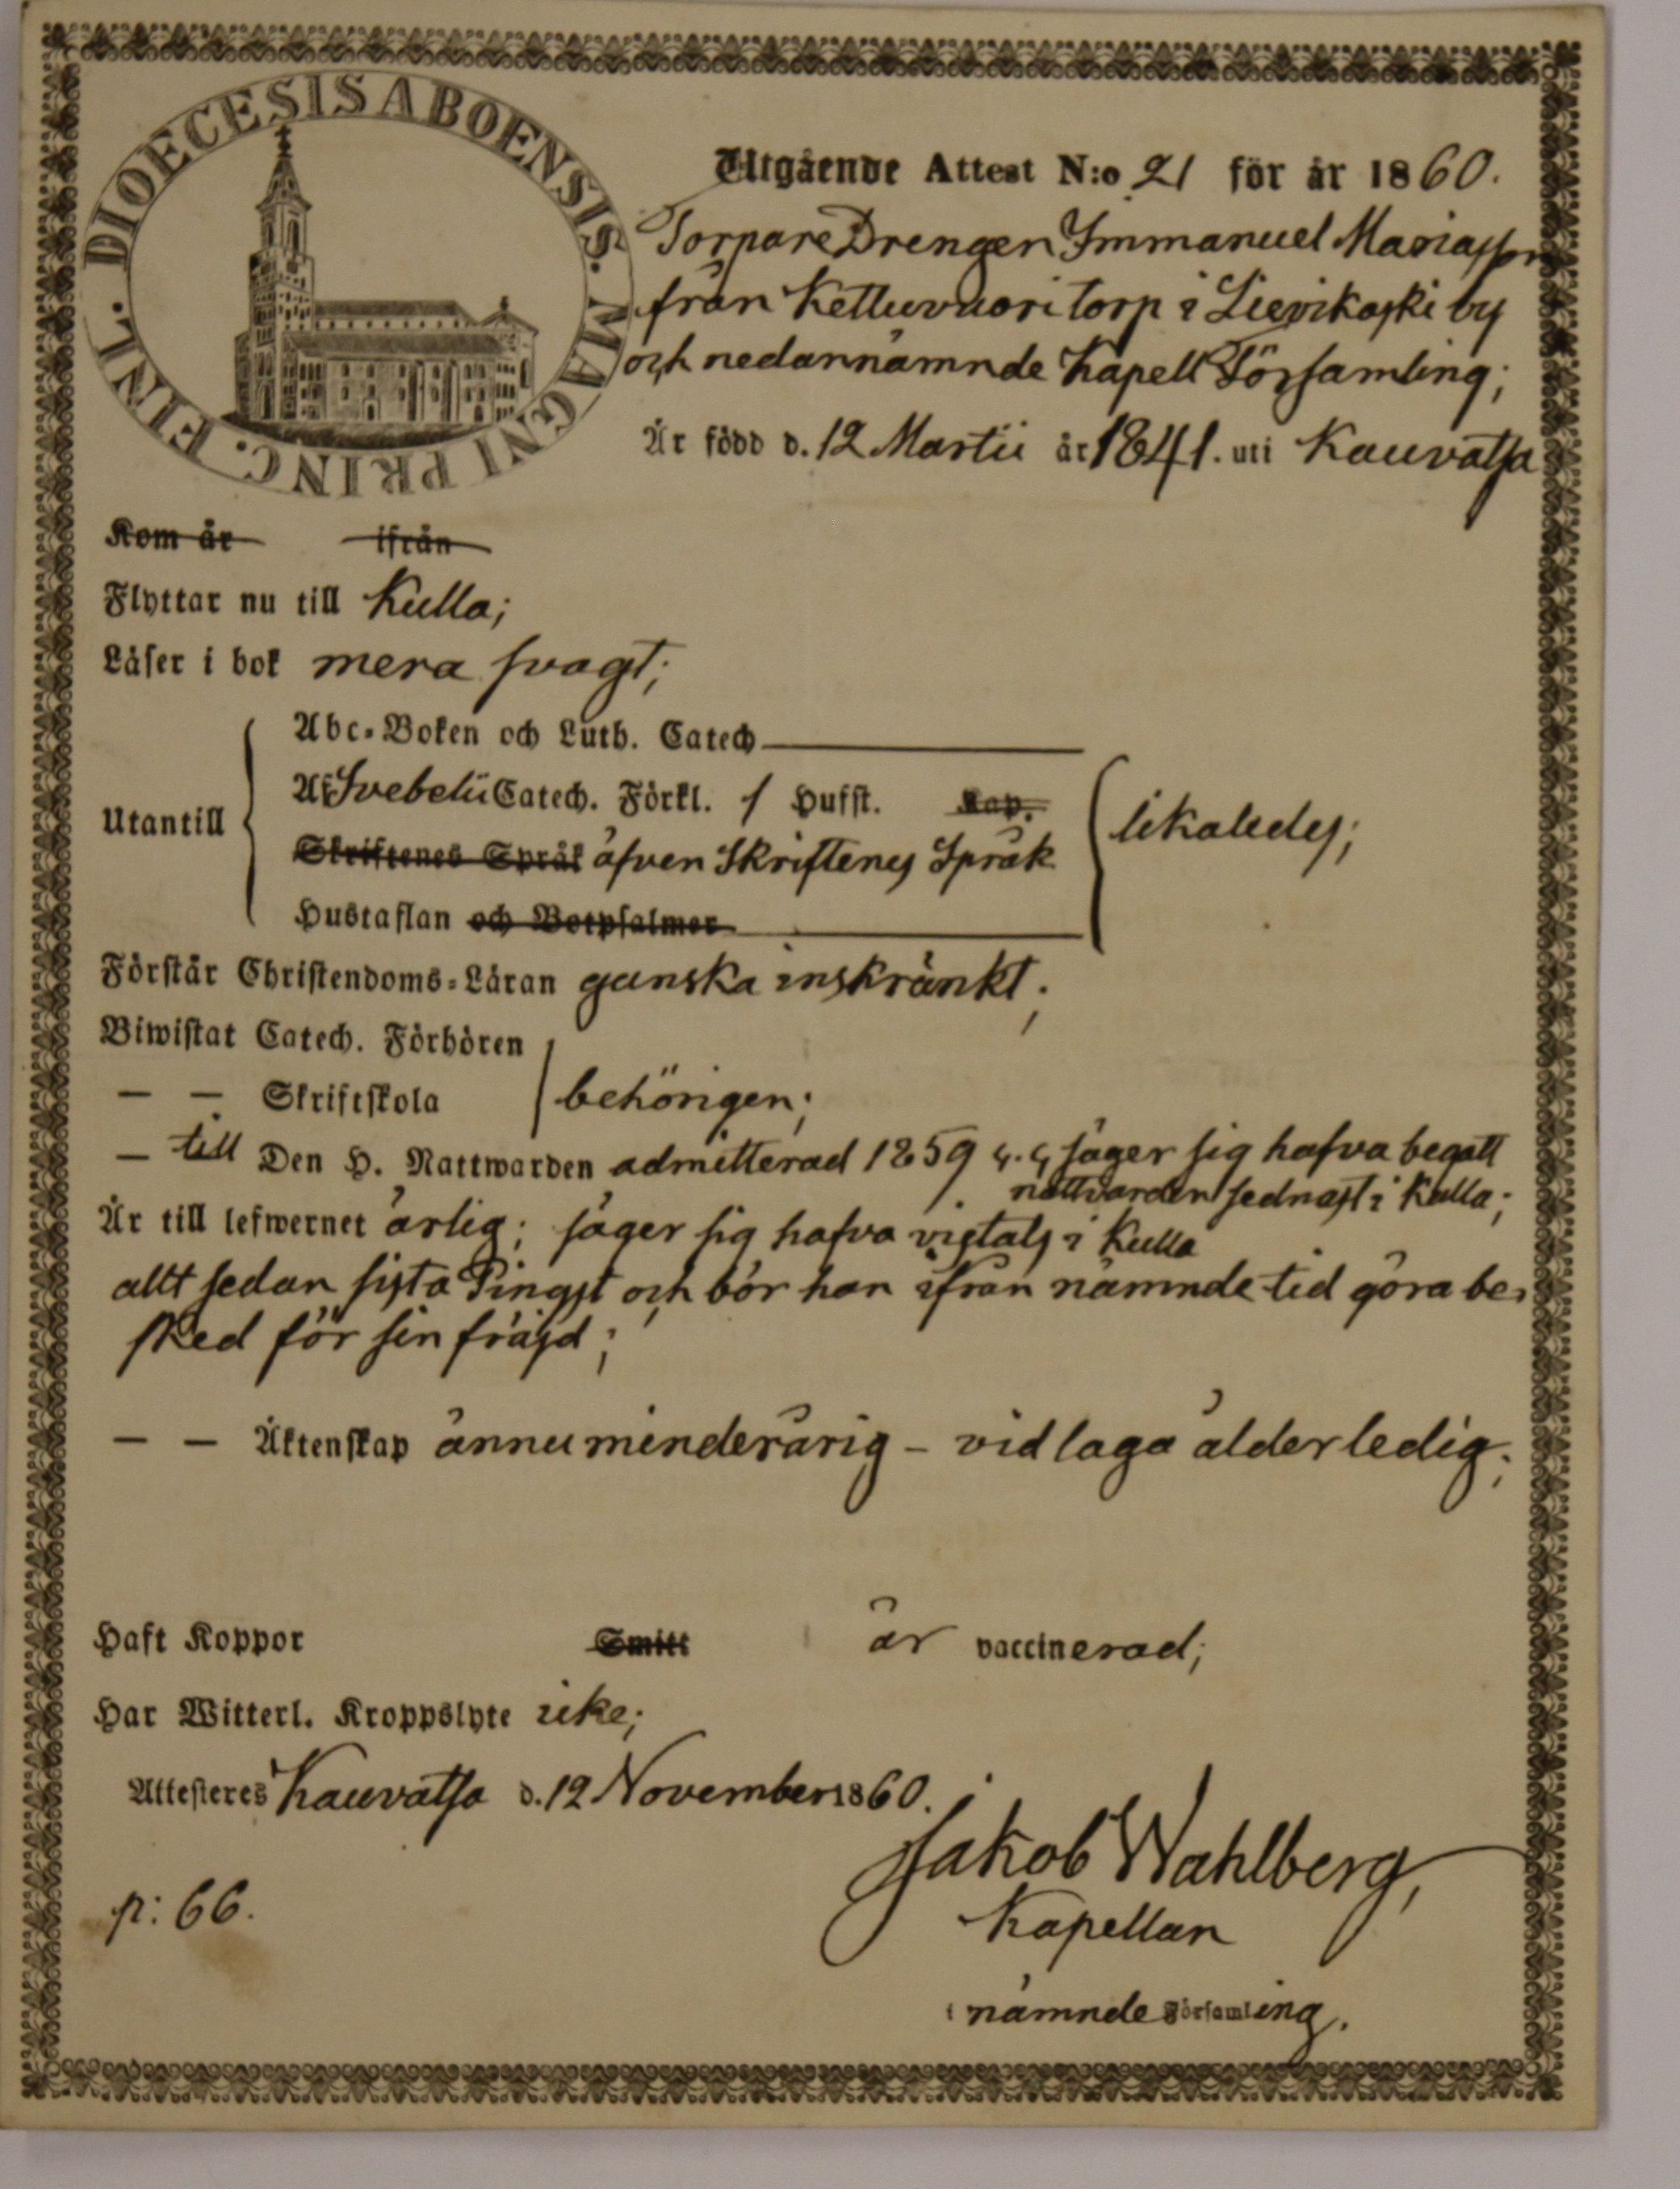 DIOECESIS ABOENSIS. MAGNI PRINC. FINL.
Utgående Attest N:o 21 för år 1860.
Torpare Drengen Immanuel Mariasson
från Kettuvuori torp i Lievikoski by
och nedannämnde Kapell Församling;
Är född d. 12 Martii år 1841. uti Kauvatsa
Kom år ifrån
Flyttar nu till Kulla;
Läser i bok mera svagt;
Abc-Boken och Luth. Catech
Af Svebelii Catech. Förkl. 1 Hufst. Kap.
Utantill
likaledes;
Skriftenes Språk äfven Skriftenes Språk
Hustaflan och Botpsalmer
Förstår Christendoms-Läran ganska inskränkt;
Biwistat Catech. Förhören
— — Skriftskola behörigen;
— till Den H. Nattwarden admitterad 1859 säger sig hafva begått
nattvarden sednast i Kulla;
Är till lefwernet ärlig; säger sig hafva vistats i Kulla
allt sedan sista Pingst och bör han ifrån nämnde tid göra be-
sked för sin fräjd;
— — Äktenskap ännu minderårig – vid laga ålder ledig;
Haft Koppor Smitt är vaccinerad;
Har Witterl. Kroppslyte icke;
Attesteres Kauvatsa d. 12 November 1860.
Jakob Wahlberg,
p: 66.
Kapellan
i nämnde Församling.